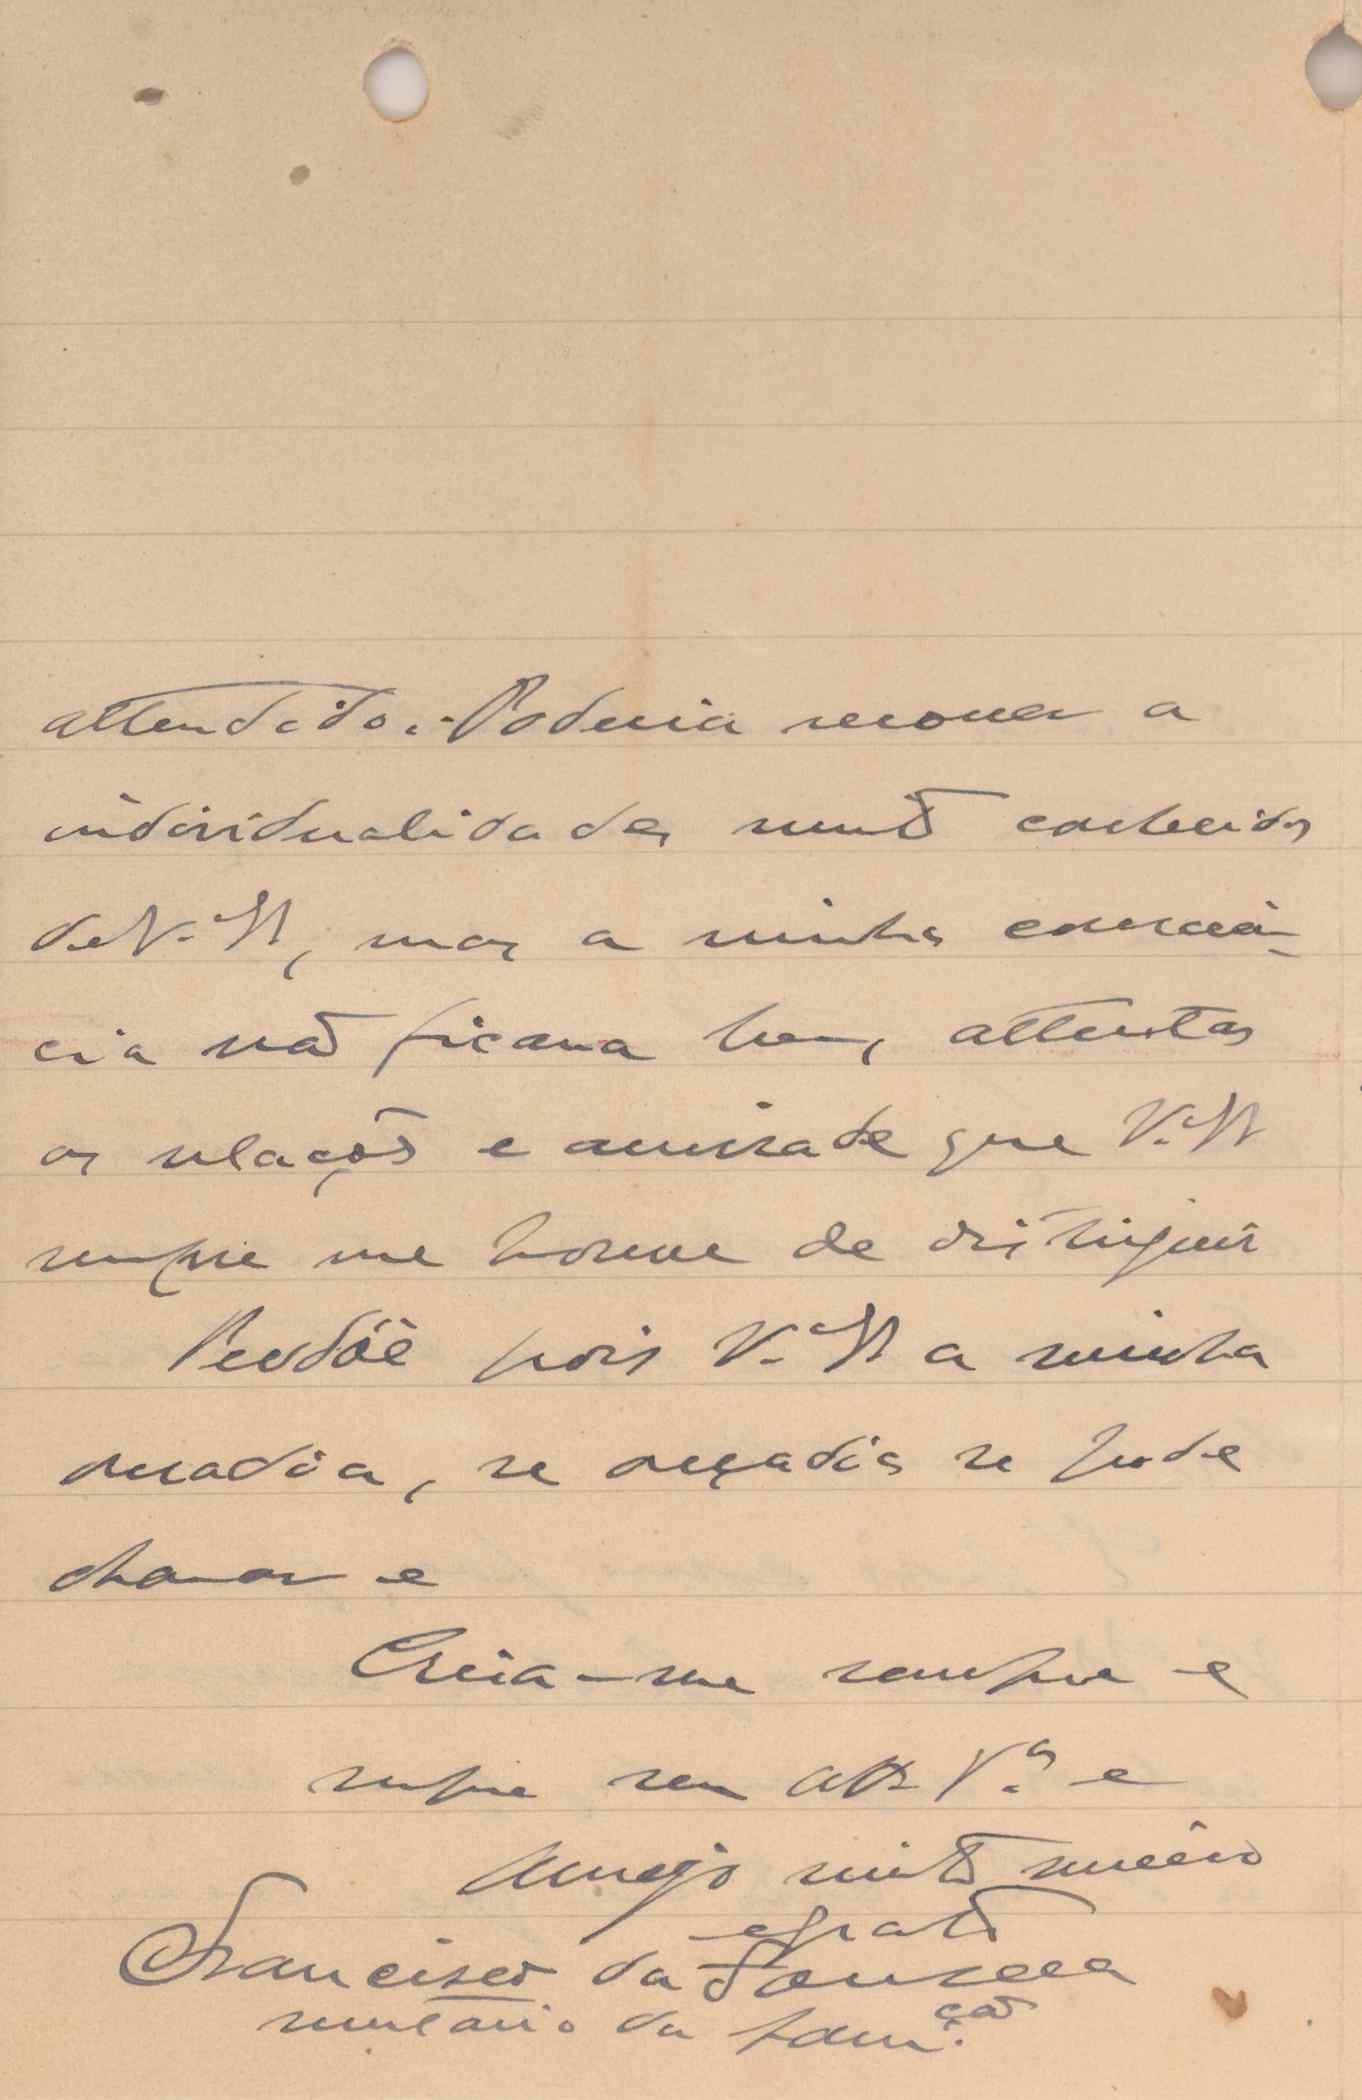 attendido. Poderia recorrer a
individualidades muito conhecidas
de V. , mas a minha consciên-
cia não ficava bem, attentas
as relações e amisade que V.
sempre me honrou de distinguir
Perdôe pois V. a minha
ousadia, se ousadia se pode
chamar e
Creia-me sempre e
sempre seu Att. V.or e
Amigo muito sincero
e grato
Francisco da Fonseca
secretario da Adm.ção